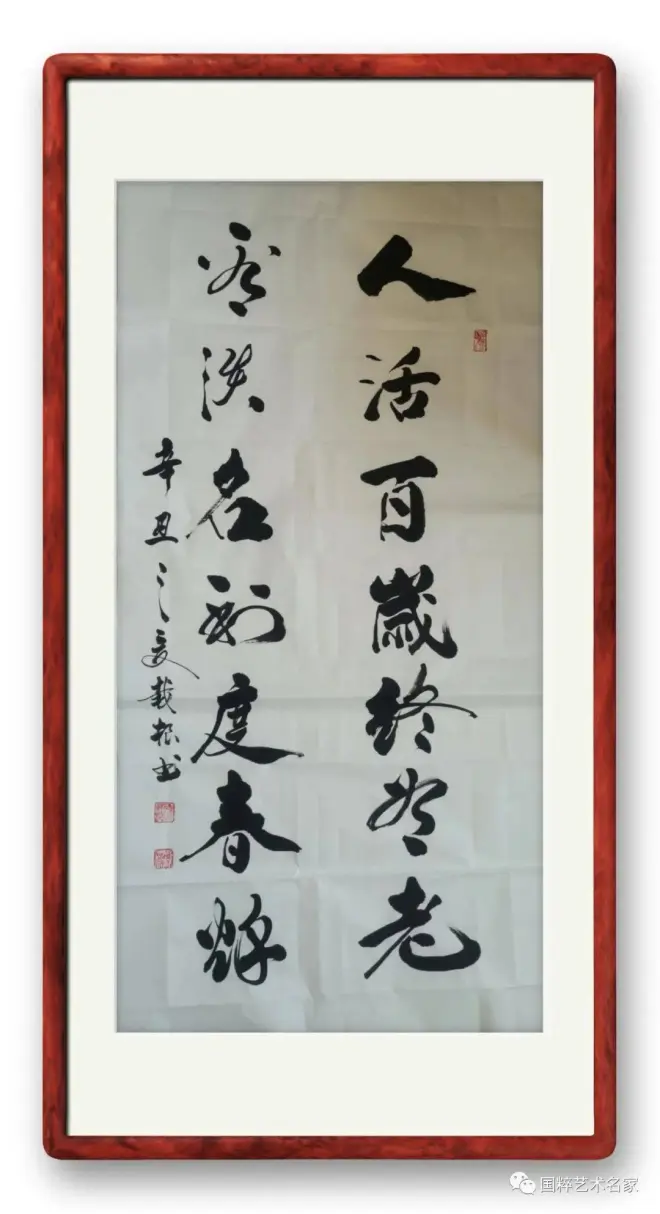 人活百歲終老
看淡名利度春輝
辛丑之夏載根书
国粹艺术名家